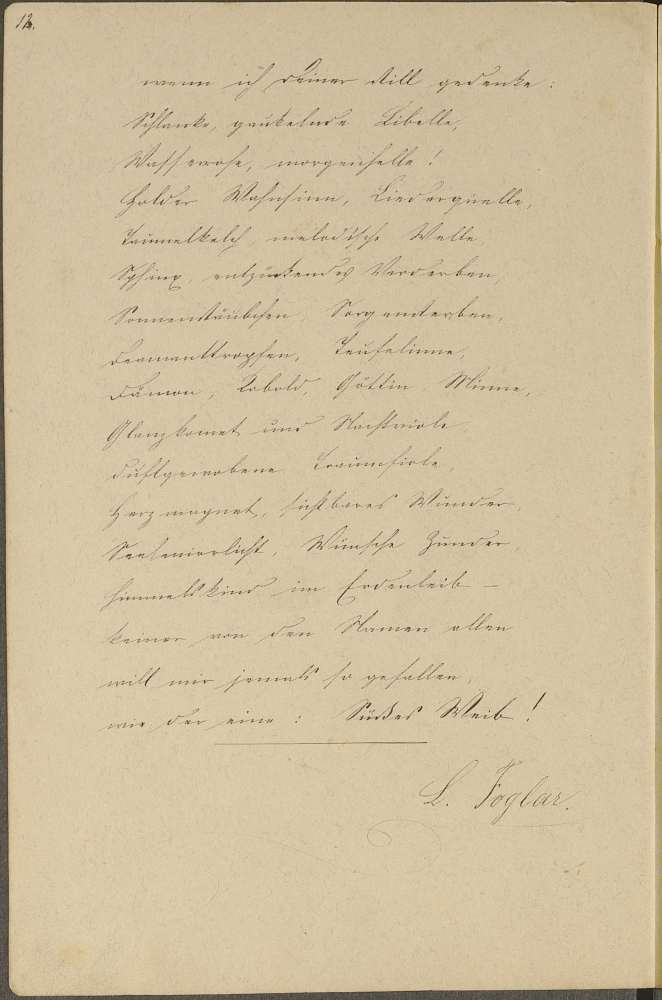 12.
wenn ich Deiner still gedenke:
Schlanke, gaukelnde Libelle,
Wasserrose, morgenhelle!
Holder Wahnsinn, Liederquelle,
Taumelkelch, melodische Welle,
Sphinx, entzückendes Verderben,
Sonnenstäubchen, Sorgenterben,
Diamanttropfen, Teufelinne,
Dämon, Kobold, Göttin Minne,
Glanzkomet und Nachtviole,
duftgewobene
Herzmagnet, sichtbares Wunder,
Seelenirrlicht, Wünsche Zunder,
Himmelskind im Erdenleib –
keiner von den Namen allen
will mir jemals so gefallen,
wie der eine: Süßes Weib!
L. Foglar.